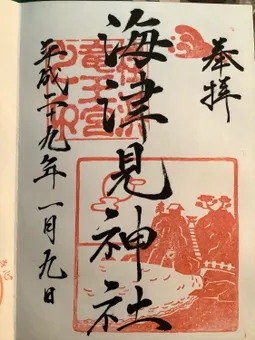 奉拝
海津見神社
平成二十九年一月九日